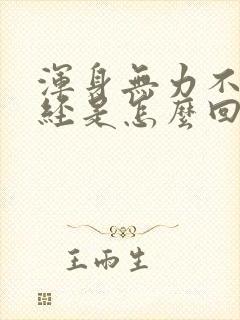 渾身無力不
經是怎麼回
王雨生